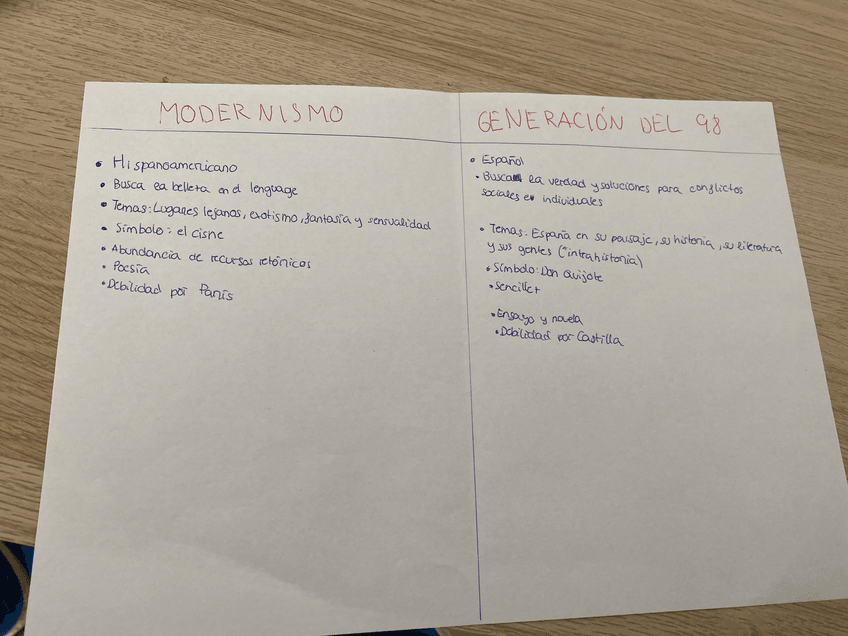 MODERNISMO
• Hispanoamericano
• Busca la belleza en el lenguage
• Temas: Lugares lejanos, exotismo, fantasía y sensualidad
• Símbolo: el cisne
• Abundancia de recursos retóricos
• Poesía
• Debilidad por París
GENERACIÓN DEL 98
• Español
• Busca la verdad y soluciones para conflictos
sociales e individuales
• Temas: España en su paisaje, su historia, su literatura
y sus gentes ("intrahistoria)
• Símbolo: Don Quijote
• Sencillez
• Ensayo y novela
• Debilidad por Castilla